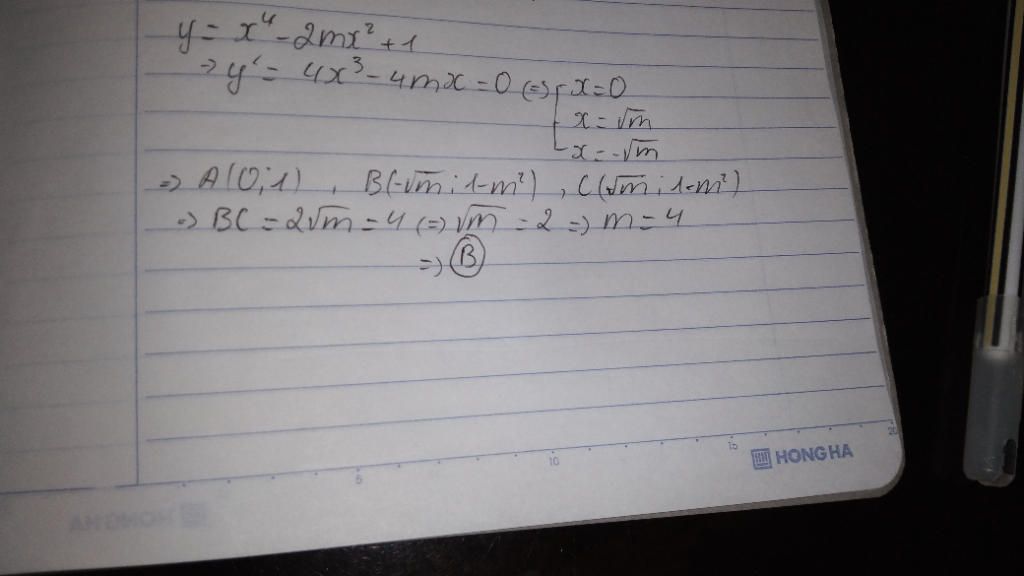 y = x⁴ - 2mx² + 1
→ y' = 4x³ - 4mx = 0 (=) [ x = 0
x = √m
x = -√m
=> A(0;1) , B(-√m ; 1-m²) , C(√m ; 1-m²)
=> BC = 2√m = 4 (=) √m = 2 => m = 4
=> B
5 10 15 20
HONG HA
HONG HA